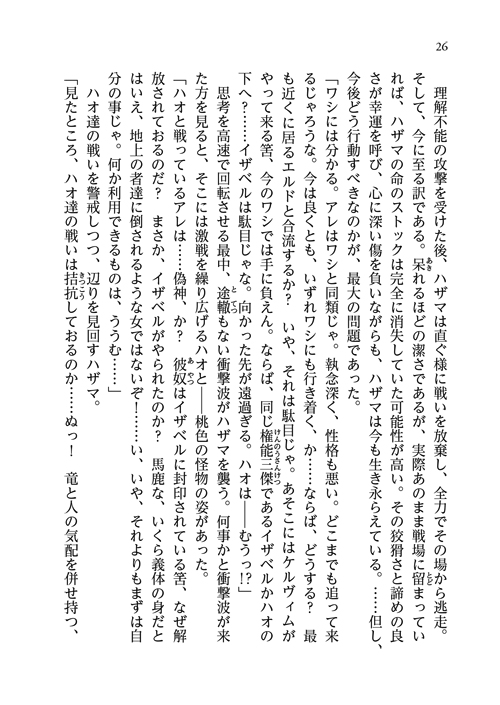 26
理解不能の攻撃を受けた後、ハザマは直ぐ様に戦いを放棄し、全力でその場から逃走。
そして、今に至る訳である。呆れるほどの潔さであるが、実際あのまま戦場に留まってい
れば、ハザマの命のストックは完全に消失していた可能性が高い。その狡猾さと諦めの良
さが幸運を呼び、心に深い傷を負いながらも、ハザマは今も生き永らえている。……但し、
今後どう行動すべきなのかが、最大の問題であった。
「ワシには分かる。アレはワシと同類じゃ。執念深く、性格も悪い。どこまでも追って来
るじゃろうな。今は良くとも、いずれワシにも行き着く、か……ならば、どうする？　最
も近くに居るエルドと合流するか？　いや、それは駄目じゃ。あそこにはケルヴィムが
やって来る筈、今のワシでは手に負えん。ならば、同じ権能三傑であるイザベルかハオの
下へ？……イザベルは駄目じゃな。向かった先が遠過ぎる。ハオは――むうっ!?」
思考を高速で回転させる最中、途轍もない衝撃波がハザマを襲う。何事かと衝撃波が来
た方を見ると、そこには激戦を繰り広げるハオと――桃色の怪物の姿があった。
「ハオと戦っているアレは……偽神、か？　彼奴はイザベルに封印されている筈、なぜ解
放されておるのだ？　まさか、イザベルがやられたのか？　馬鹿な、いくら義体の身だと
はいえ、地上の者達に倒されるような女ではないぞ！……い、いや、それよりもまずは自
分の事じゃ。何か利用できるものは、ううむ……」
ハオ達の戦いを警戒しつつ、辺りを見回すハザマ。
「見たところ、ハオ達の戦いは拮抗しておるのか……ぬっ！　竜と人の気配を併せ持つ、